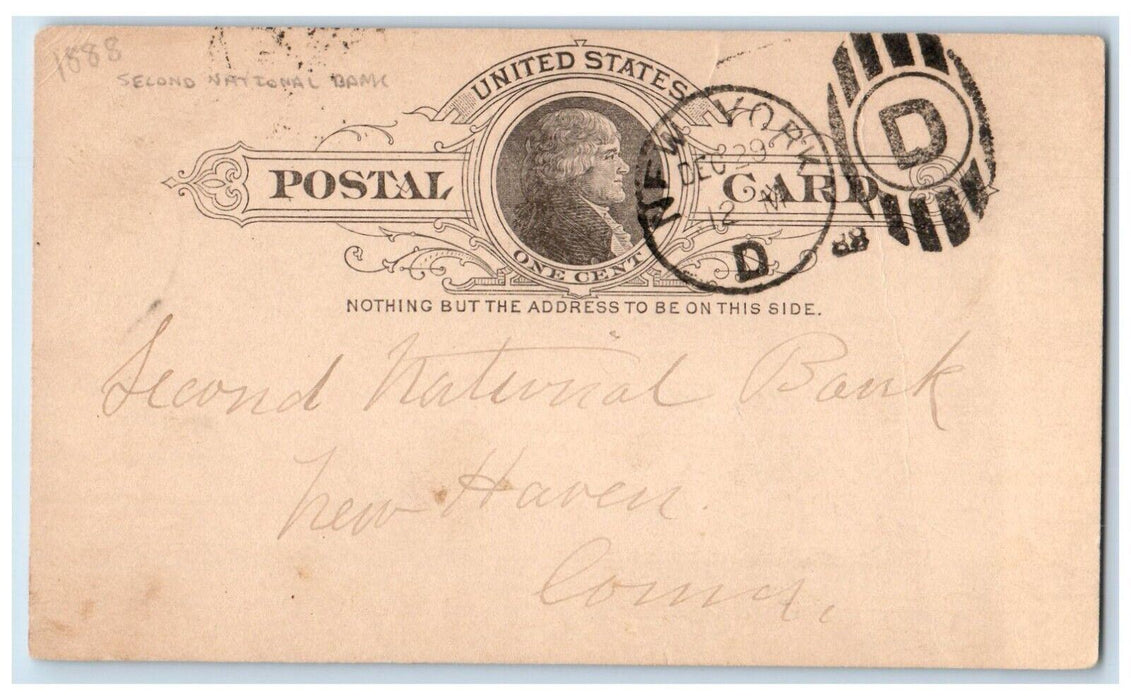 1888
SECOND NATIONAL BANK
UNITED STATES
POSTAL CARD
ONE CENT
NEW YORK
DEC 29
12 M
D
88
D
NOTHING BUT THE ADDRESS TO BE ON THIS SIDE.
Second National Bank
New Haven.
Conn,